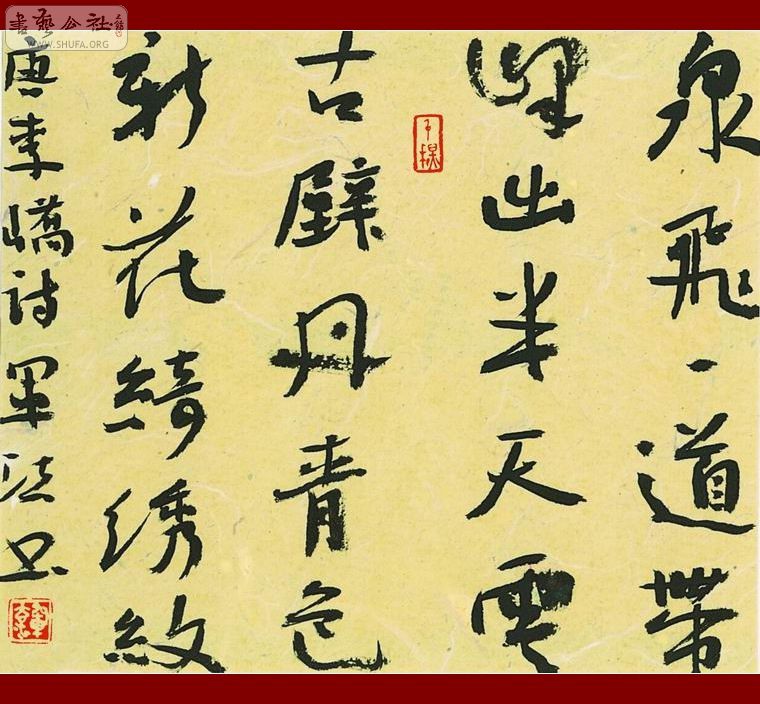 書藝公社
WWW.SHUFA.ORG
泉飛一道帶
峰出半天雲
古壁丹青色
新花綺綉紋
唐李嶠詩军法书